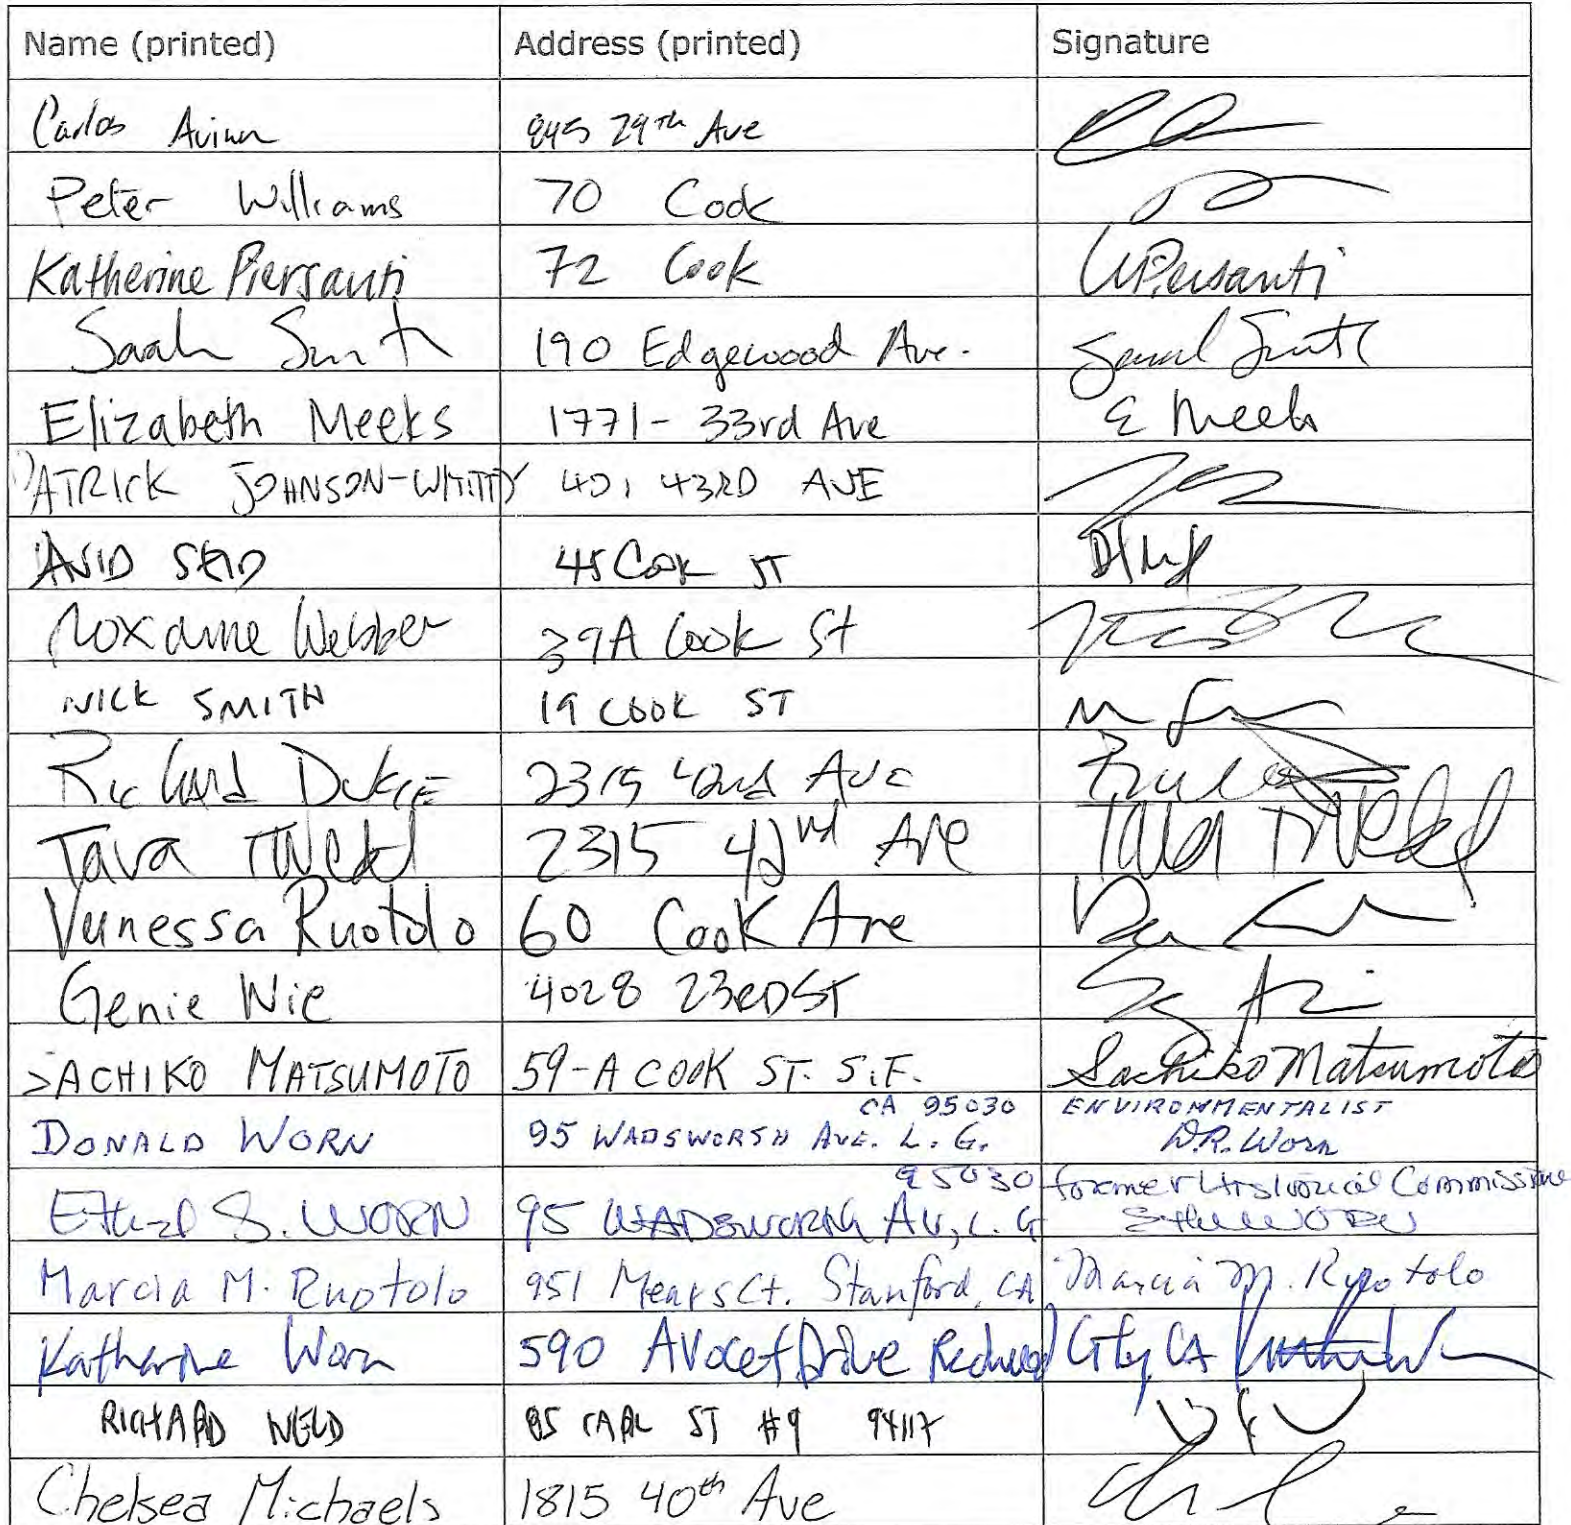 Name (printed) Address (printed) Signature
Carlos 845 29th Ave
Peter Williams 70 Cook
Katherine Piersanti 72 Cook Piersanti
Sarah Smith 190 Edgewood Ave. Smith
Elizabeth Meeks 1771 - 33rd Ave E Meeks
PATRICK JOHNSON-WHITTY 401 43RD AVE
45 Cook ST
Roxanne Webber 39A Cook St
NICK SMITH 19 COOK ST
Richard 2315 42nd Ave
Tara 2315 42nd Ave Tara
Vanessa Ruotolo 60 Cook Ave
Genie 4028 23RD ST
SACHIKO MATSUMOTO 59-A COOK ST. S.F. Sachiko Matsumoto
CA 95030 ENVIRONMENTALIST
DONALD WORN 95 WADSWORTH AVE. L.G. D.R. Worn
95030 former Historical Commissione
Ethel S. WORN 95 WADSWORTH AV, L.G Ethel WORN
Marcia M. Ruotolo 951 Mears Ct. Stanford, CA Marcia M. Ruotolo
Katharine Worn 590 Avocet Drive Redwood City, CA
RICHARD WELD 85 CARL ST #9 94117
Chelsea Michaels 1815 40th Ave